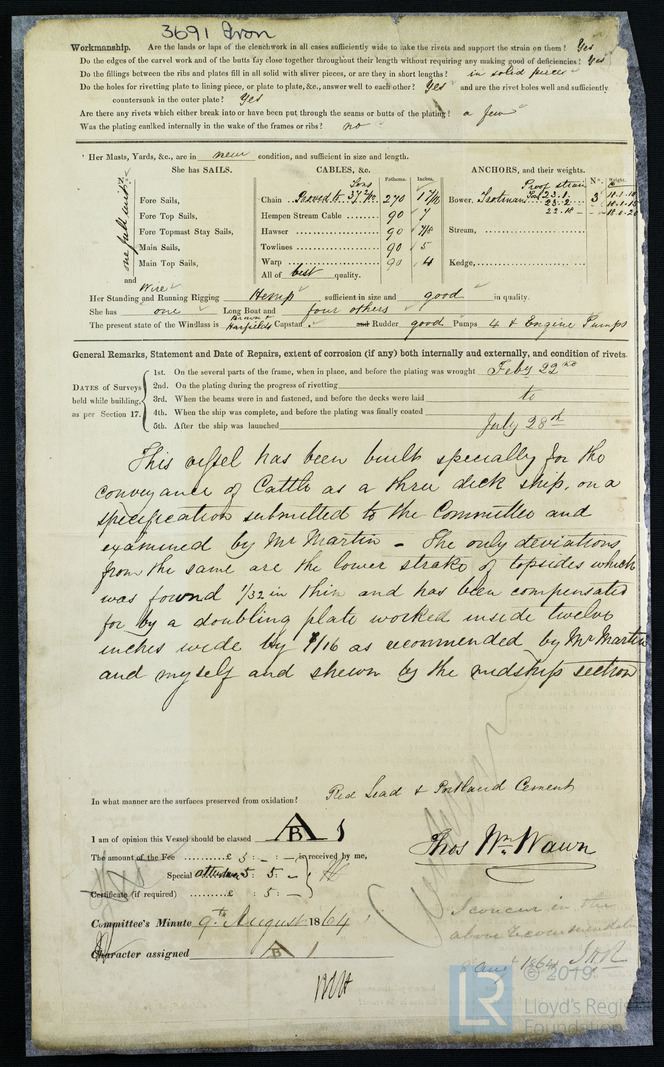 3691 Iron
Workmanship. Are the lands or laps of the clenchwork in all cases sufficiently wide to take the rivets and support the strain on them? Yes
Do the edges of the carvel work and of the butts fay close together throughout their length without requiring any making good of deficiencies? Yes
Do the fillings between the ribs and plates fill in all solid with sliver pieces, or are they in short lengths? in solid pieces
Do the holes for rivetting plate to lining piece, or plate to plate, &c., answer well to each other? Yes and are the rivet holes well and sufficiently
countersunk in the outer plate? Yes
Are there any rivets which either break into or have been put through the seams or butts of the plating? a few
Was the plating caulked internally in the wake of the frames or ribs? no
Her Masts, Yards, &c., are in new condition, and sufficient in size and length.
She has SAILS.
one full suit
Fore Sails,
Fore Top Sails,
Fore Topmast Stay Sails,
Main Sails,
Main Top Sails,
and
CABLES, &c.
Fathoms. Inches.
Tons
Chain Proved to 270
Hempen Stream Cable 90 7
Hawser 90
Towlines 90 5
Warp 90 4
All of best quality.
ANCHORS, and their weights.
Proof strain No. Weight.
Bower, Trotman 23.1. 3
23.2.
Stream,
Kedge,
Wire
Her Standing and Running Rigging Hemp sufficient in size and good in quality.
She has one Long Boat and four others
The present state of the Windlass is Brown & Harfields Capstan and Rudder good Pumps 4 & Engine Pumps
General Remarks, Statement and Date of Repairs, extent of corrosion (if any) both internally and externally, and condition of rivets.
DATES of Surveys held while building, as per Section 17.
1st. On the several parts of the frame, when in place, and before the plating was wrought Feby 22nd
2nd. On the plating during the progress of rivetting
3rd. When the beams were in and fastened, and before the decks were laid to
4th. When the ship was complete, and before the plating was finally coated
5th. After the ship was launched July 28th
This vessel has been built specially for the
conveyance of Cattle as a three deck ship, on a
specification submitted to the Committee and
examined by Mr Martin - The only deviations
from the same are the lower strake of topsides which
was found 1/32 in thin and has been compensated
for by a doubling plate worked inside twelve
inches wide by 9/16 as recommended by Mr Martin
and myself and shewn by the midship section
In what manner are the surfaces preserved from oxidation? Red Lead & Portland Cement
I am of opinion this Vessel should be classed A B 1
Thos Wm Wawn
The amount of the Fee £ 5 : - : - is received by me,
Special 5 : 5 : -
Certificate (if required) £ : 5 : -
Committee's Minute 9th August 1864
I concur in the
above recommendation
Character assigned A B 1
Augt 1864
© 2019
LR
Lloyd's Register
Foundation